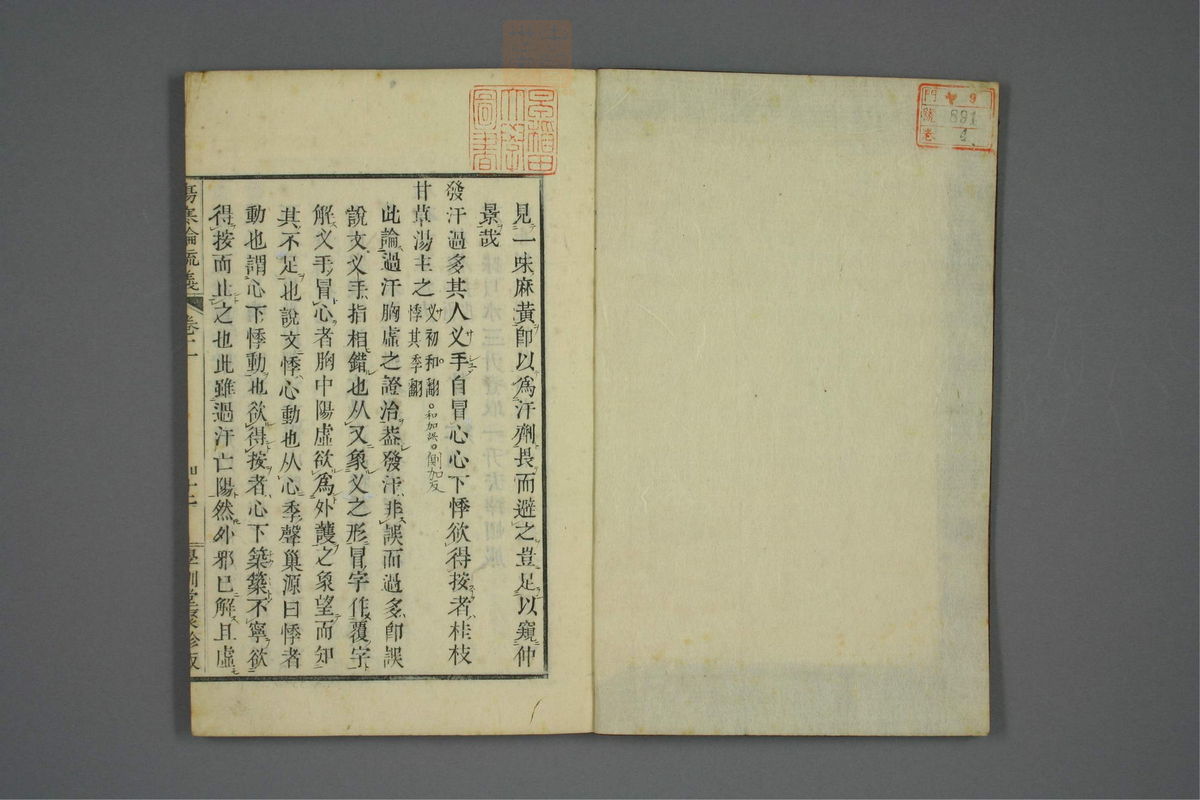 門 9
號 891
卷 4
早稻田
大學
圖書
見一味麻黃卽以爲汗劑畏而避之豈足以窺仲
景哉
發汗過多其人叉手自冒心心下悸欲得按者桂枝
甘草湯主之叉初和翻。和加誤。側加反
悸其季翻
此論過汗胸虛之證治葢發汗非誤而過多卽誤
說文叉手指相錯也从又象叉之形冒字作覆字
解叉手冒心者胸中陽虛欲爲外護之象望而知
其不足也說文悸心動也从心季聲巢源曰悸者
動也謂心下悸動也欲得按者心下築築不寧欲
得按而止之也此雖過汗亡陽然外邪已解且虛
傷寒論疏義 卷二 學訓堂聚珍版